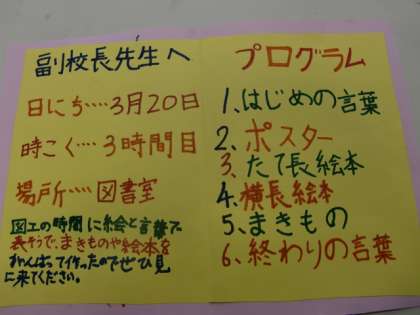 副校長先生へ
日にち‥‥3月20日
時こく‥‥3時間目
場所‥‥図書室
図工の時間に絵と言葉で
表そうで、まきものや絵本を
がんばって作ったのでぜひ見
に来てください。
プログラム
1、はじめの言葉
2、ポスター
3、たて長絵本
4、横長絵本
5、まきもの
6、終わりの言葉